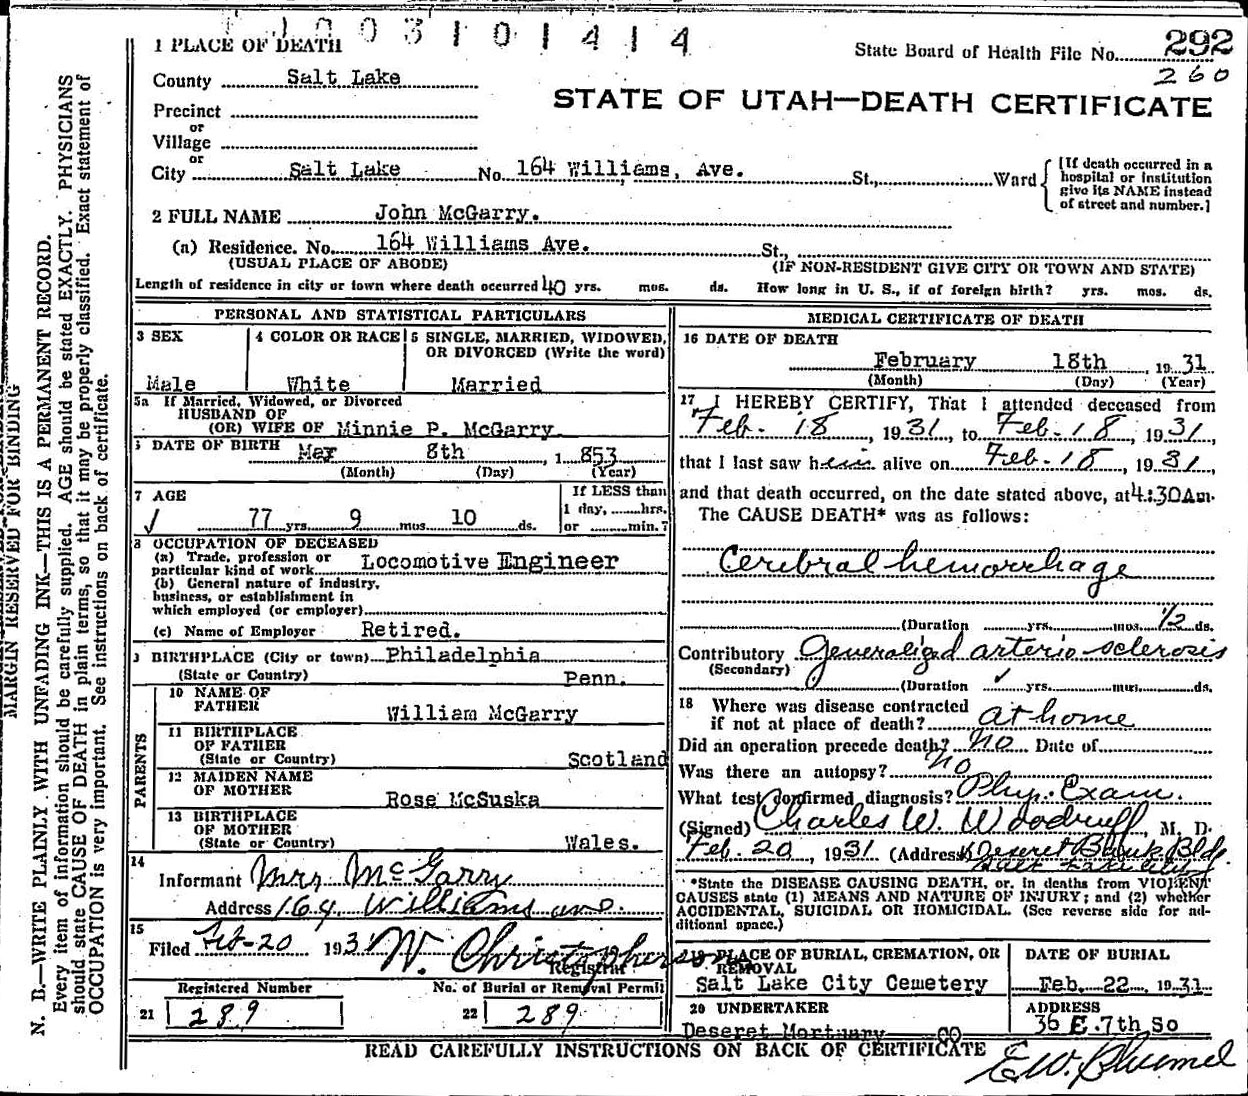 1003101414
1 PLACE OF DEATH
State Board of Health File No. 292
260
County Salt Lake
STATE OF UTAH—DEATH CERTIFICATE
Precinct
or
Village
or
City Salt Lake No. 164 Williams, Ave. St., Ward
[If death occurred in a hospital or institution give its NAME instead of street and number.]
2 FULL NAME John McGarry.
(a) Residence. No. 164 Williams Ave. St.,
(USUAL PLACE OF ABODE) (IF NON-RESIDENT GIVE CITY OR TOWN AND STATE)
Length of residence in city or town where death occurred 40 yrs. mos. ds. How long in U. S., if of foreign birth? yrs. mos. ds.
PERSONAL AND STATISTICAL PARTICULARS
3 SEX
Male
4 COLOR OR RACE
White
5 SINGLE, MARRIED, WIDOWED,
OR DIVORCED (Write the word)
Married
5a If Married, Widowed, or Divorced
HUSBAND OF
(OR) WIFE OF Minnie P. McGarry
6 DATE OF BIRTH May 8th, 1853
(Month) (Day) (Year)
7 AGE
77 yrs. 9 mos. 10 ds.
If LESS than
1 day, hrs.
or min.?
8 OCCUPATION OF DECEASED
(a) Trade, profession or
particular kind of work Locomotive Engineer
(b) General nature of industry,
business, or establishment in
which employed (or employer)
(c) Name of Employer Retired.
9 BIRTHPLACE (City or town) Philadelphia
(State or Country) Penn.
PARENTS
10 NAME OF
FATHER William McGarry
11 BIRTHPLACE
OF FATHER
(State or Country) Scotland
12 MAIDEN NAME
OF MOTHER Rose McSuska
13 BIRTHPLACE
OF MOTHER
(State or Country) Wales.
14
Informant Mrs McGarry
Address 164 Williams ave.
15
Filed Feb-20 1931 W. Christopherson
Registrar
Registered Number
21 289
No. of Burial or Removal Permit
22 289
MEDICAL CERTIFICATE OF DEATH
16 DATE OF DEATH
February 18th, 1931
(Month) (Day) (Year)
17 I HEREBY CERTIFY, That I attended deceased from
Feb. 18, 1931, to Feb. 18, 1931,
that I last saw him alive on Feb. 18, 1931,
and that death occurred, on the date stated above, at 4:30Am.
The CAUSE DEATH* was as follows:
Cerebral hemorrhage
(Duration yrs. mos. 1/2 ds.
Contributory Generalized arterio sclerosis
(Secondary)
(Duration yrs. mos. ds.
18 Where was disease contracted
if not at place of death? at home
Did an operation precede death? no Date of
Was there an autopsy? no
What test confirmed diagnosis? Phys. Exam.
(Signed) Charles W. Woodruff, M. D.
Feb. 20, 1931 (Address) Deseret Bank Bldg.
Salt Lake City
*State the DISEASE CAUSING DEATH, or, in deaths from VIOLENT
CAUSES state (1) MEANS AND NATURE OF INJURY; and (2) whether
ACCIDENTAL, SUICIDAL OR HOMICIDAL. (See reverse side for additional space.)
19 PLACE OF BURIAL, CREMATION, OR
REMOVAL
Salt Lake City Cemetery
DATE OF BURIAL
Feb. 22, 1931.
20 UNDERTAKER
Deseret Mortuary CO
ADDRESS
36 E. 7th So
READ CAREFULLY INSTRUCTIONS ON BACK OF CERTIFICATE
MARGIN RESERVED FOR BINDING
N. B.—WRITE PLAINLY WITH UNFADING INK—THIS IS A PERMANENT RECORD.
Every item of information should be carefully supplied. AGE should be stated EXACTLY. PHYSICIANS
should state CAUSE OF DEATH in plain terms, so that it may be properly classified. Exact statement of
OCCUPATION is very important. See instructions on back of certificate.